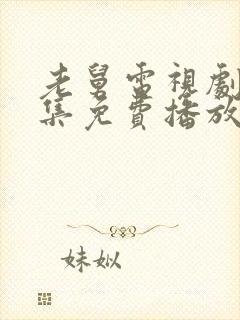 老舅電視劇
集免費播放
妹姒